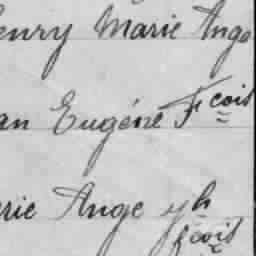 enry Marie Ange
an Eugéne Fcois
rie Ange yh
fcois